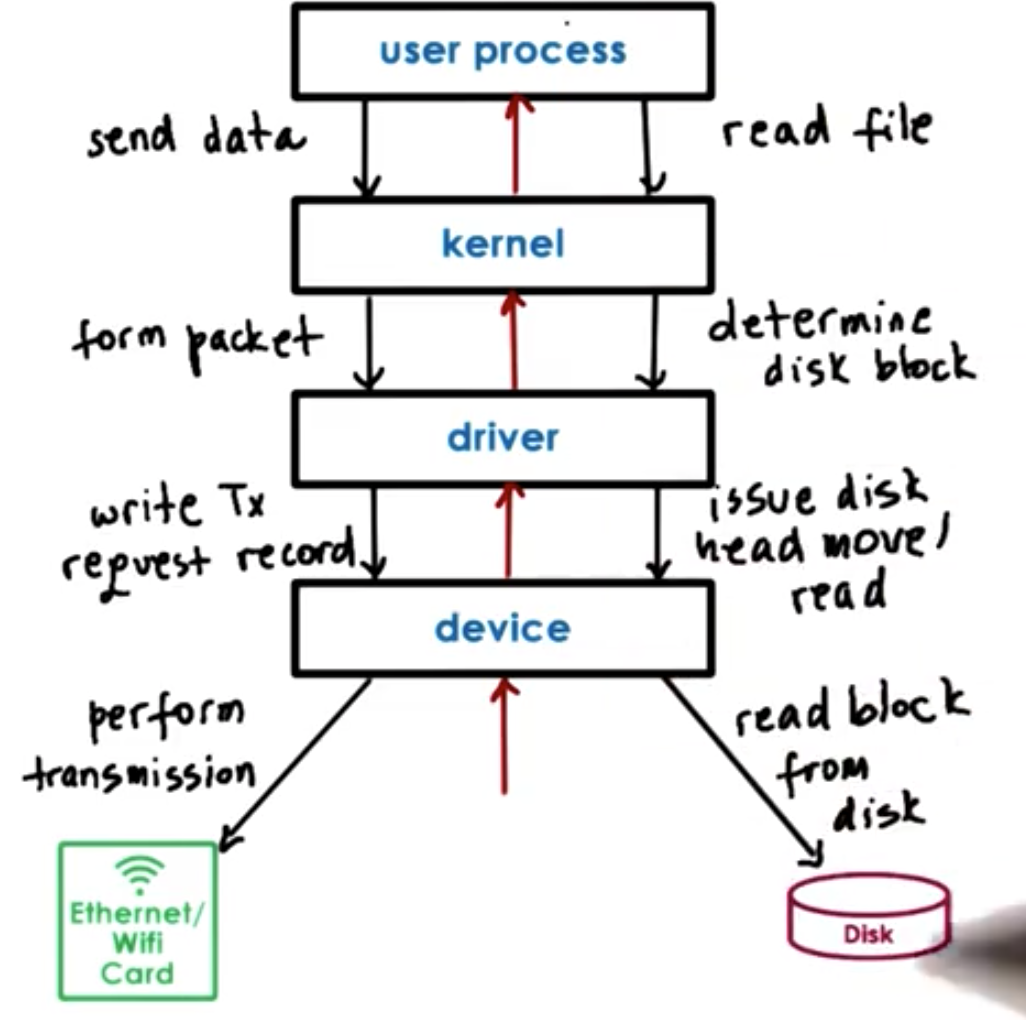 user process
send data
read file
kernel
form packet
determine
disk block
driver
write Tx
request record
issue disk
head move/
read
device
perform
transmission
read block
from
disk
Ethernet/
Wifi
Card
Disk